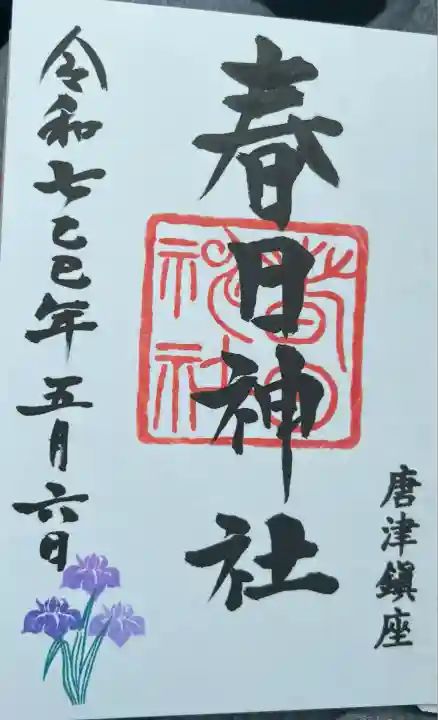 唐津鎮座
春日神社
春日神社
令和七乙巳年五月六日